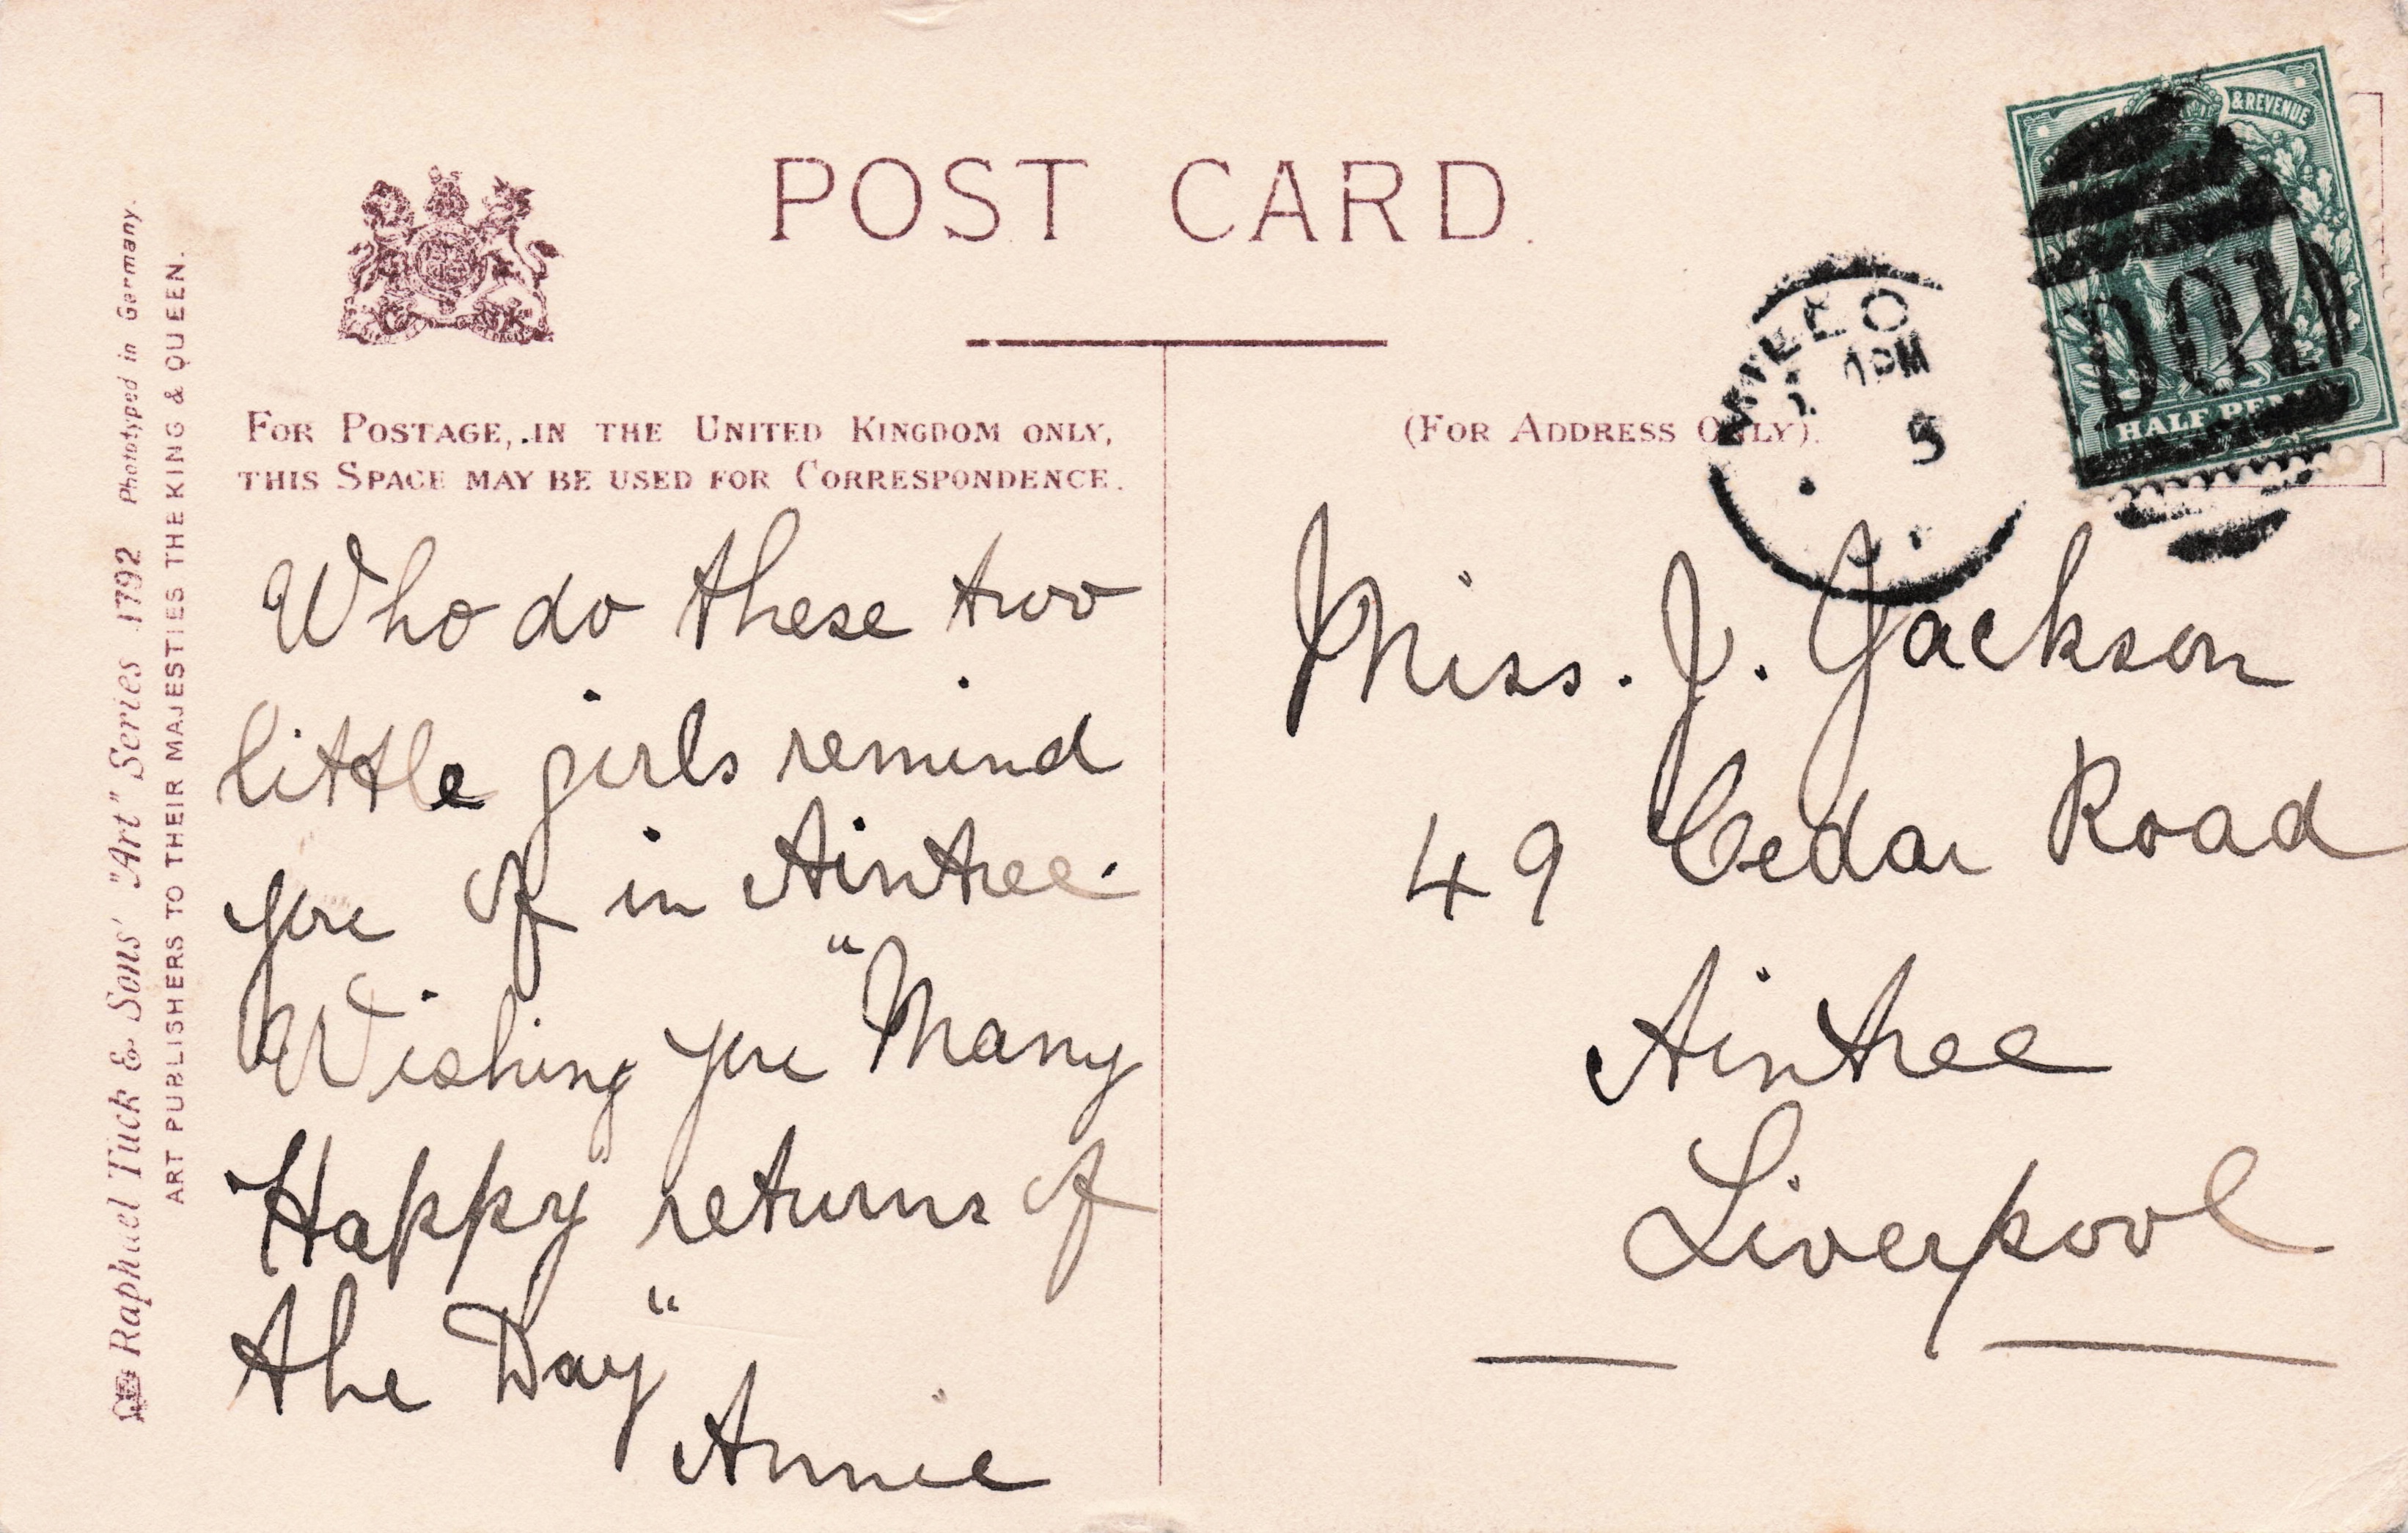 POST CARD.
FOR POSTAGE, IN THE UNITED KINGDOM ONLY,
THIS SPACE MAY BE USED FOR CORRESPONDENCE.
(FOR ADDRESS ONLY).
Raphael Tuck & Sons' "Art" Series 1792 Phototyped in Germany.
ART PUBLISHERS TO THEIR MAJESTIES THE KING & QUEEN.
Who do these two
little girls remind
you of in Aintree.
Wishing you "Many
Happy returns of
the Day"
Annie
Miss. J. Jackson
49 Cedar Road
Aintree
Liverpool
& REVENUE
HALF PENNY
PM
5